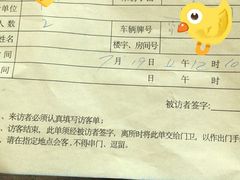 单位
人数 2 车辆牌号
姓名 楼宇、房间号
7月19日 午12时10
被访者签字:
、来访者必须认真填写访客单;
、访客结束,此单须经被访者签字,离所时将此单交给门卫,以作出门手
、请在指定地点会客,不得串门、逗留。